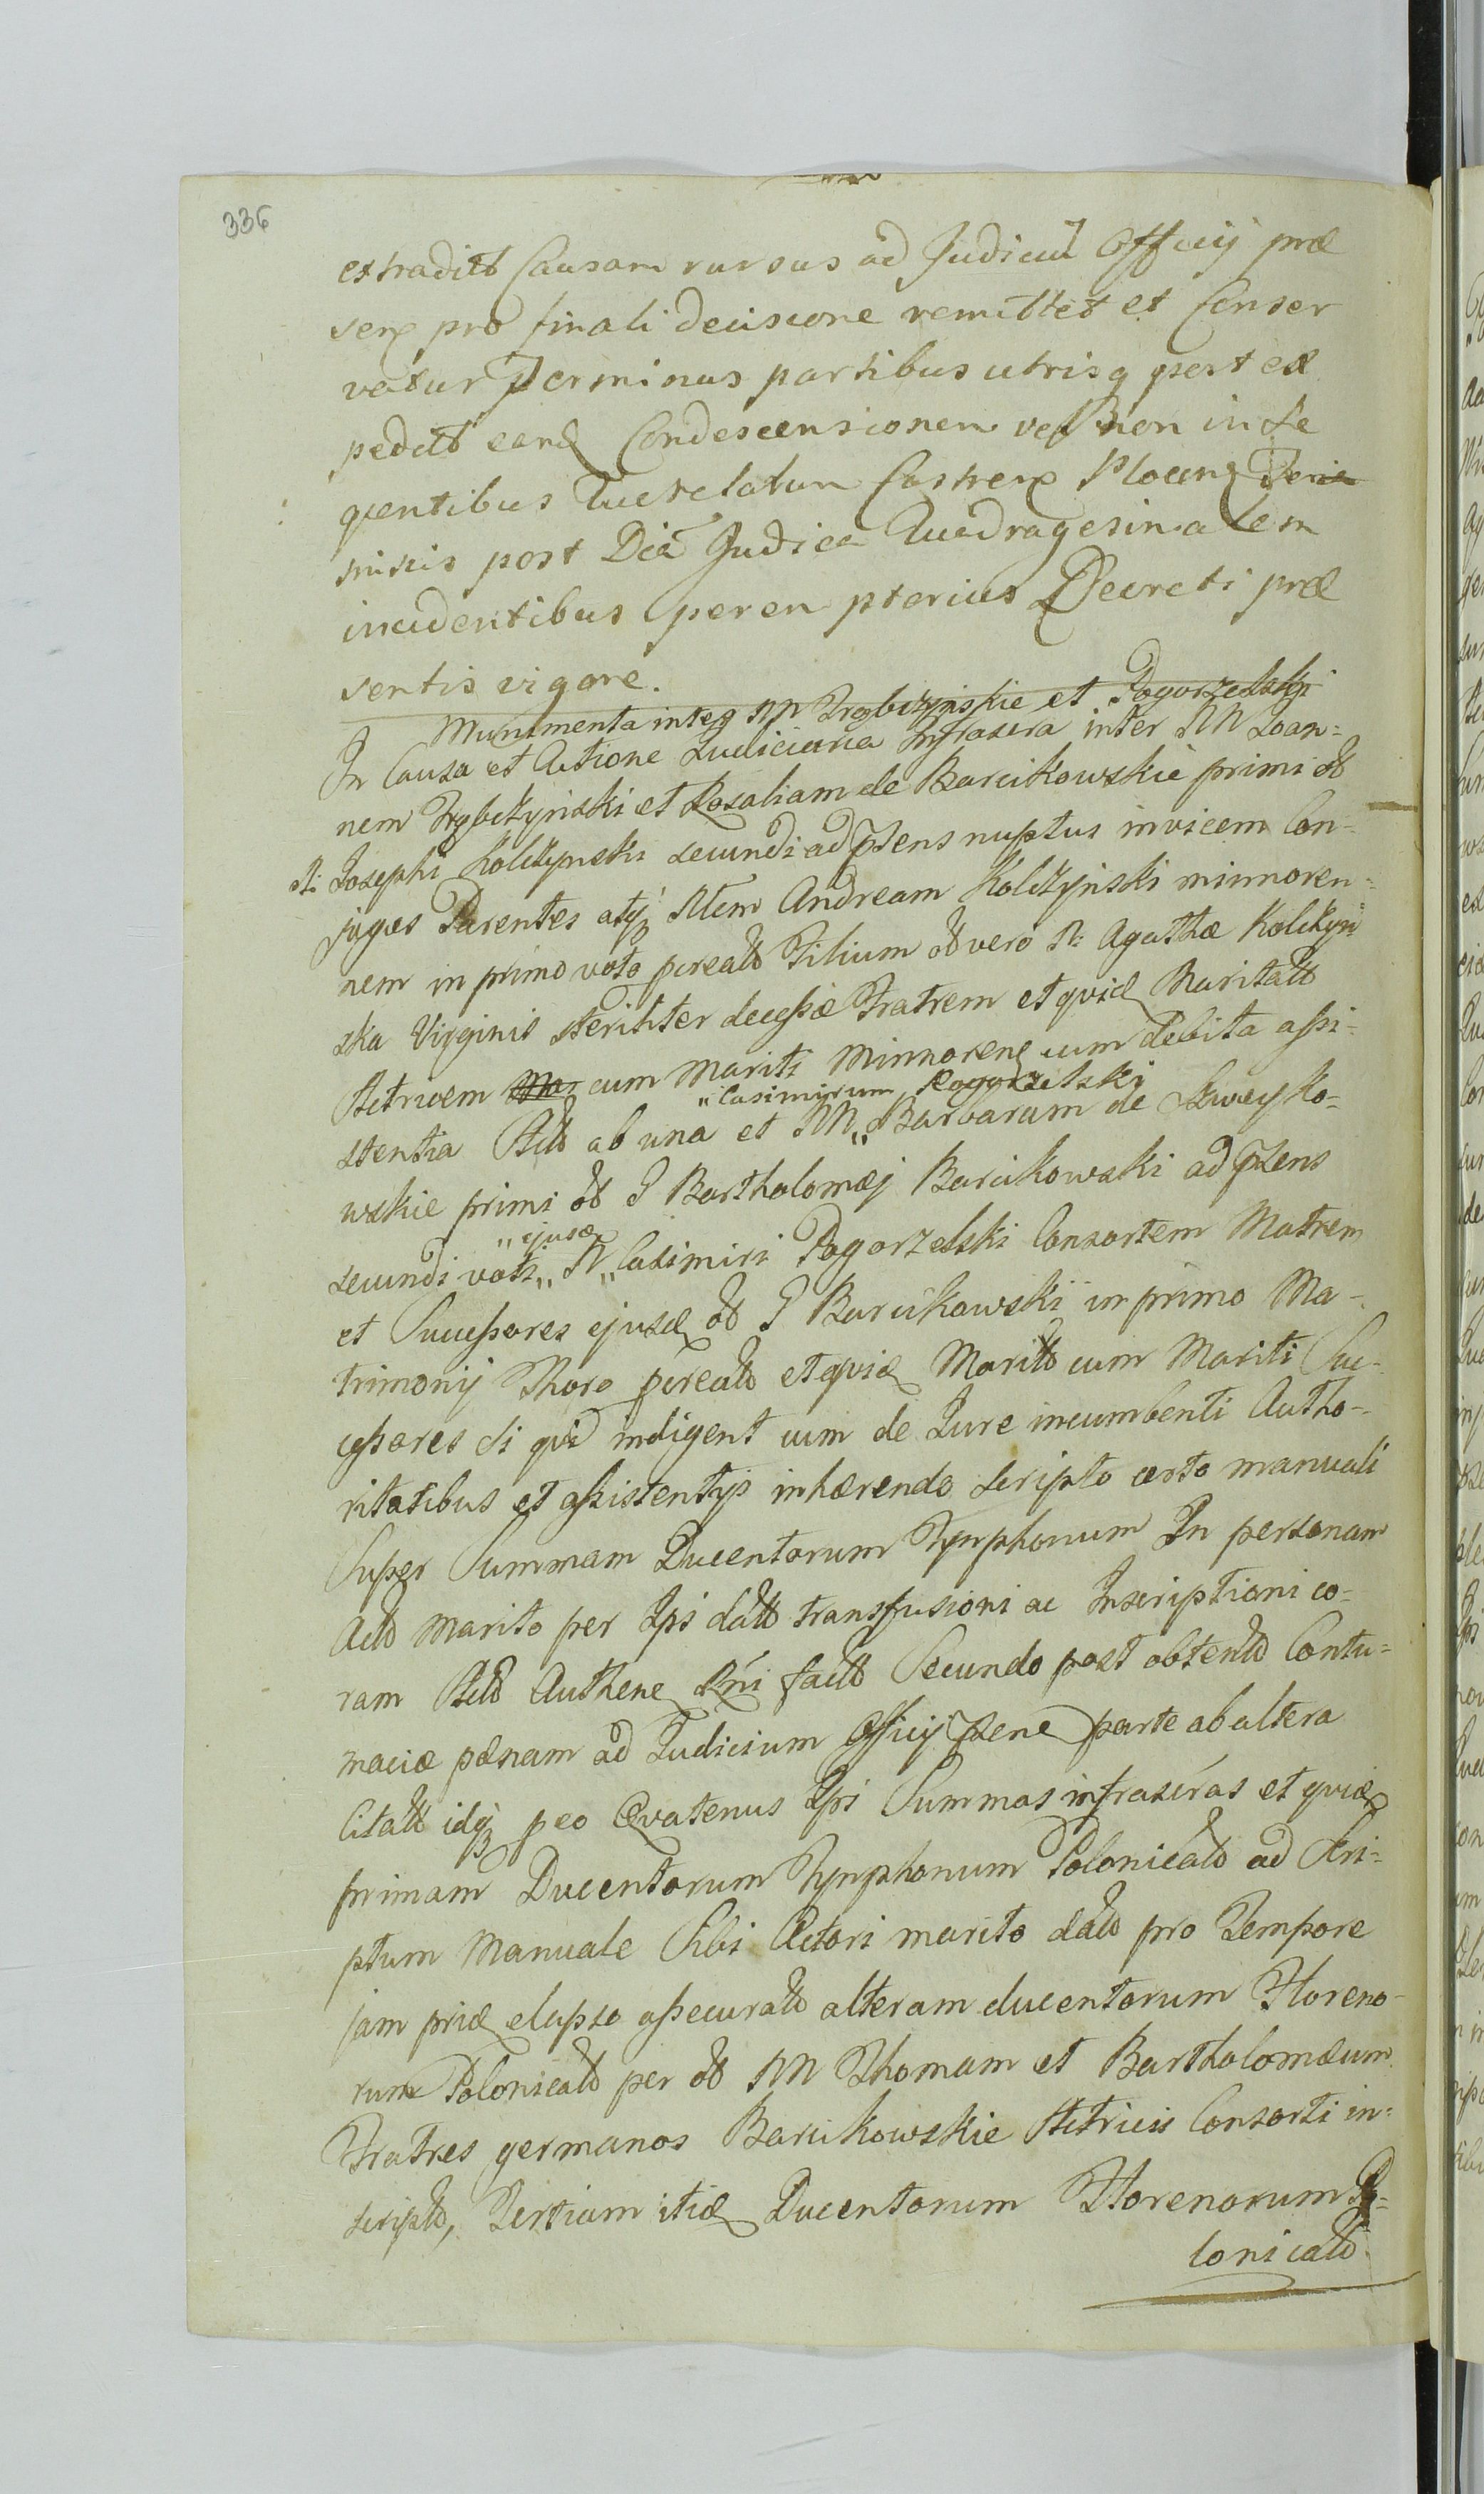 336
extradit Causam rursus ad Judicium Officij præ
sens pro finali decisione remittet et Conser
vatur Terminus partibus utrisq post ex
pedit eand Condescensionem vel non in Se
quentibus Querelatum Castrens Plocens Teria
misis post Diæ Judica Quadragesimalem
incidentibus peremptorius Decreti præ
sentis vigore.
Munimenta inter NN Trzbiczynskie et Pogorzelski
In Causa et Actione Judiciaria Infrascra inter NN Joan=
nem Trzbiczynski et Rosaliam de Barcikowskie primi olt
N: Josephi Kolczynski secundi ad psens nuptus invicem Con=
juges Parentes atq Nlem Andream Kolczynski minnoren=
nem in primo voto pcreatt Filium olt vero N: Agathæ Kolczyn
ska Virginis sterihter decessæ Fratrem et quid Maritatt
Actricem Ma cum Mariti Minnorene cum Debita assi=
"Casimirum Pogorzelski
stentia Actt ab una et NN " Barbaram de Szweyko=
wskie primi olt G Bartholomæj Barcikowski ad psens
" ejusd
secundi voti " N " Casimiri Pogorzelski Consortem Matrem
et Successores ejusd olt G Barcikowski in primo Ma=
trimonij Thoro pcreatt et quid Maritt cum Mariti Suc=
cessores si qui indigent cum de Jure incumbenti Autho=
ritatibus et assistentijs inhærendo scripto certo manuali
Super Summam Ducentorum Tynphonum In personam
Actt Marito per Ipsi datt transfusioni ac Inscriptioni co=
ram Actt Authene Rni factt Secundo post obtentt Contu=
maciæ pænam ad Judicium Officij psens parte ab altera
Citatt idq peo Quatenus Ipsi Summas infrascras et quid
primam Ducentorum Tynphonum Polonicatt ad Scri=
ptum Manuale Sibi Actori marito datt pro Tempore
jam prid elapso assecuratt alteram ducentorum Floreno=
rum Polonicatt per olt NN Thomam et Bartholomæum
Fratres germanos Barcikowskie Actricis Consorti in=
scriptt, Tertiam itid Ducentorum Florenorum Po=
lonicatt